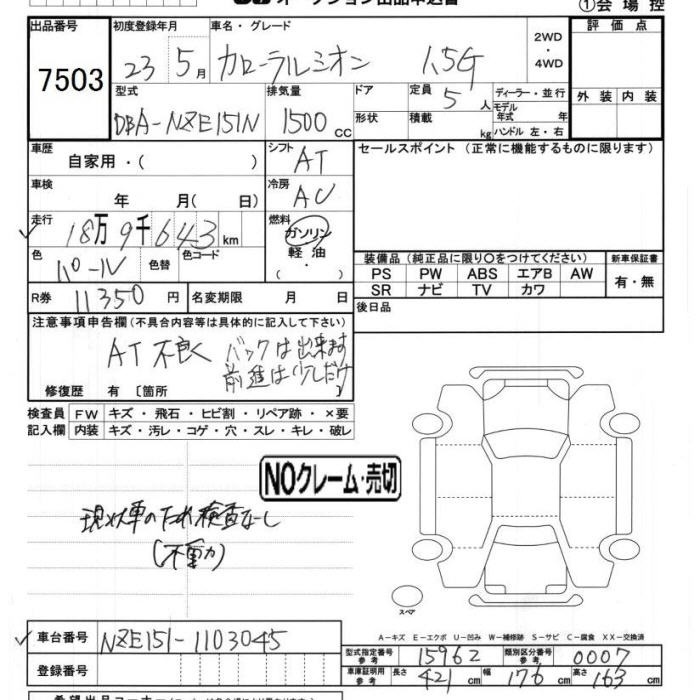 オークション出品申込書
①会場控
出品番号 初度登録年月 車名・グレード 評価点
7503 23 5月 カローラルミオン 1.5G 2WD ・ 4WD
型式 排気量 ドア 定員 ディーラー・並行 外装 内装
DBA-NZE151N 1500 CC 5人 モデル年式 年
形状 積載 kg ハンドル 左・右
車歴 シフト セールスポイント (正常に機能するものに限ります)
自家用・( ) AT
車検 冷房
年 月( 日) AC
走行 燃料
18万9千643km ガソリン
色 色替 色コード 軽油
パール ・( )
装備品(純正品に限り〇をつけてください) 新車保証書
PS PW ABS エアB AW 有・無
SR ナビ TV カワ
R券 11350円 名変期限 月 日 後日品
注意事項申告欄(不具合内容等は具体的に記入して下さい)
AT不良 バックは出来ます
前進は少しだけ
修復歴 有 〔箇所 〕
検査員 FW キズ・飛石・ヒビ割・リペア跡・×要
記入欄 内装 キズ・汚レ・コゲ・穴・スレ・キレ・破レ
NOクレーム・売切
現状車のため検査なし
(不動)
スペア
A-キズ E-エクボ U-凹み W-補修跡 S-サビ C-腐食 XX-交換済
車台番号 NZE151-1103045
型式指定番号 参考 15962 類別区分番号 参考 0007
登録番号
車庫証明用 参考 長さ 421cm 幅 176cm 高さ 163cm